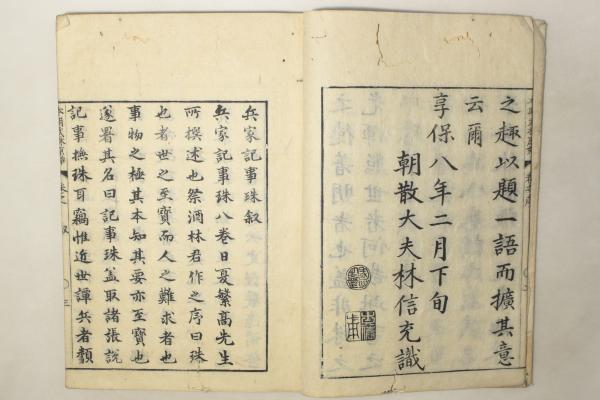 之趣以題一語而擴其意
云爾
享保八年二月下旬
朝散大夫林信充識
兵家記事珠叙
兵家記事珠八卷日夏繁高先生
所撰述也祭酒林君作之序曰珠
也者世之至寶而人之難求者也
事物之極其本知其要亦至寶也
遂署其名曰記事珠盖取諸張説
記事撫珠耳竊惟近世譚兵者類